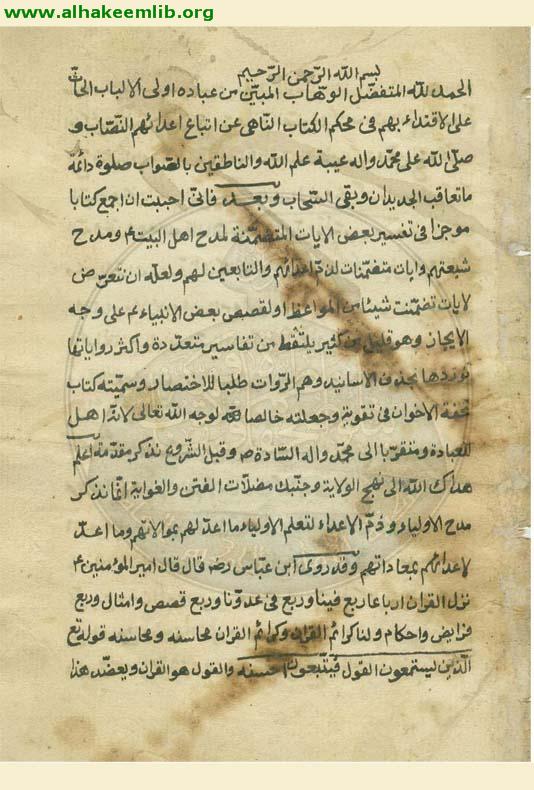 www.alhakeemlib.org
بسم الله الرحمن الرحيم
الحمد لله المتفضل الوهاب المبين من عباده اولى الالباب الحاث
على الاقتداء بهم فى محكم الكتاب الناهى عن اتباع اعدائهم النصاب و
صلى الله على محمد واله عيبة علم الله والناطقين بالصواب صلوة دائمة
ما تعاقب الجديدان وبقى السحاب وبعد فانى احببت ان اجمع كتابا
موجزا فى تفسير بعض الايات المتضمنة لمدح اهل البيت ع ومدح
شيعتهم وايات متضمنات لذم اعدائهم والتابعين لهم ولعله ان نتعرض
لايات تضمنت شيئا من المواعظ او لقصص بعض الانبياء ع على وجه
الايجاز وهو قليل من كثير يلتقط من تفاسير متعددة واكثر رواياتها
نوردها بحذف الاسانيد وهم الروات طلبا للاختصار وسميته كتاب
تحفة الاخوان فى تقوية وجعلته خالصا لوجه الله تعالى لانه اهل
للعبادة ومتقربا الى محمد واله السادة ص وقبل الشروع نذكر مقدمة اعلم
هداك الله الى نهج الولاية وجنبك مضلات الفتن والغواية انما نذكر
مدح الاولياء وذم الاعداء لتعلم الاولياء ما اعد لهم بموالاتهم وما اعد
لاعدائهم بمعاداتهم وقد روى ابن عباس رضه قال قال امير المؤمنين ع
نزل القران ارباعا ربع فينا وربع فى عدونا وربع قصص وامثال وربع
فرايض واحكام ولنا كرائم القران وكرائم القران محاسنه ومحاسنه قوله تع
الذين يستمعون القول فيتبعون احسنه والقول هو القران ويعضد هذا